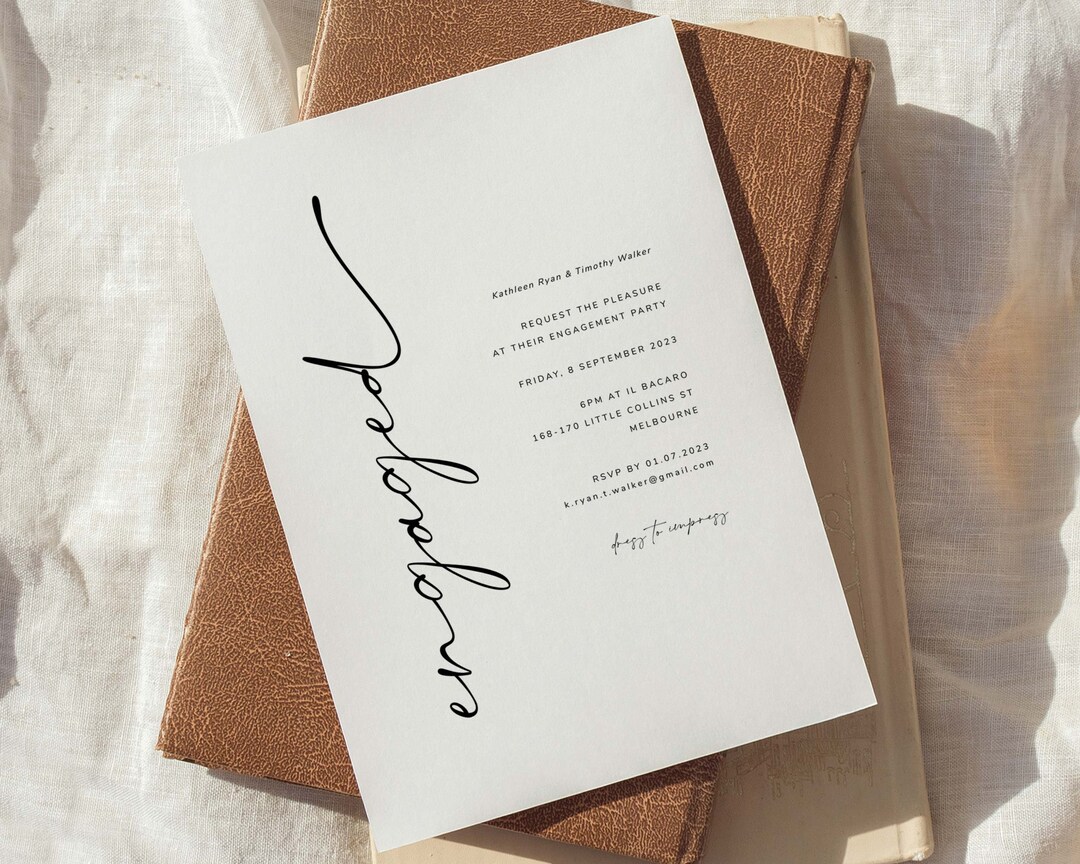 engaged
Kathleen Ryan & Timothy Walker
REQUEST THE PLEASURE
AT THEIR ENGAGEMENT PARTY
FRIDAY, 8 SEPTEMBER 2023
6PM AT IL BACARO
168-170 LITTLE COLLINS ST
MELBOURNE
RSVP BY 01.07.2023
k.ryan.t.walker@gmail.com
dress to impress